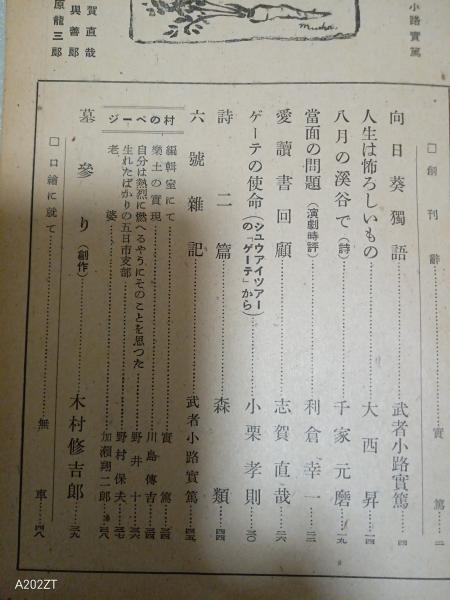 小路實篤
賀直哉
與善郎
原龍三郎
Musha
□創刊辭……實篤…二
向日葵獨語……武者小路實篤…四
人生は怖ろしいもの……大西昇…一四
八月の溪谷で（詩）……千家元麿…一九
當面の問題（演劇時評）……利倉幸一…二三
愛讀書回顧……志賀直哉…二六
ゲーテの使命（シユウアイツアーの「ゲーテ」から）……小栗孝則…三〇
詩二篇……森類…四四
六號雜記……武者小路實篤…四五
村のページ
編輯室にて……實篤…三四
樂土の實現……川島傳吉…三四
自分は熱烈に燃へるやうにそのことを思つた……野井十…三六
生れたばかりの五日市支部……野村保夫…三七
老婆……加瀨翔二郎…三八
墓參り（創作）……木村修吉郎…三九
□口繪に就て……無車…四八
A202ZT